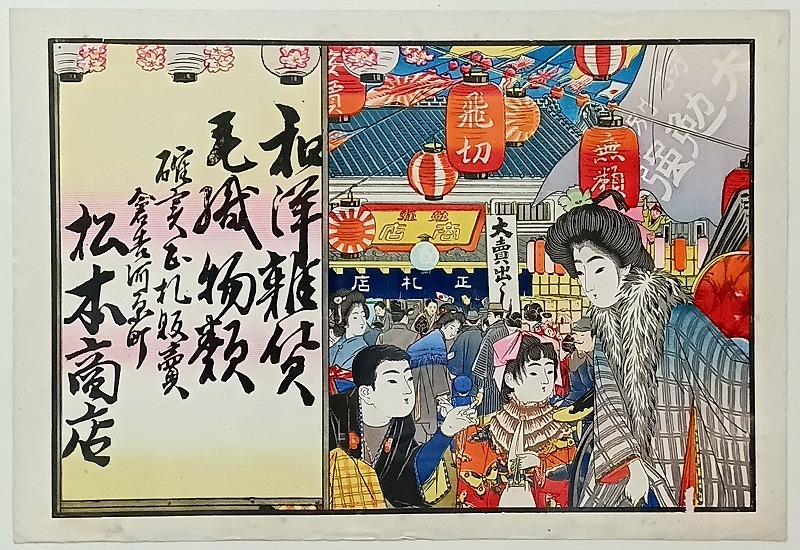 和洋雜貨
毛織物類
確実正札販賣
倉吉河原町
松本商店
飛切
無類
大勉強
勉強
商店
大賣出し
正札店